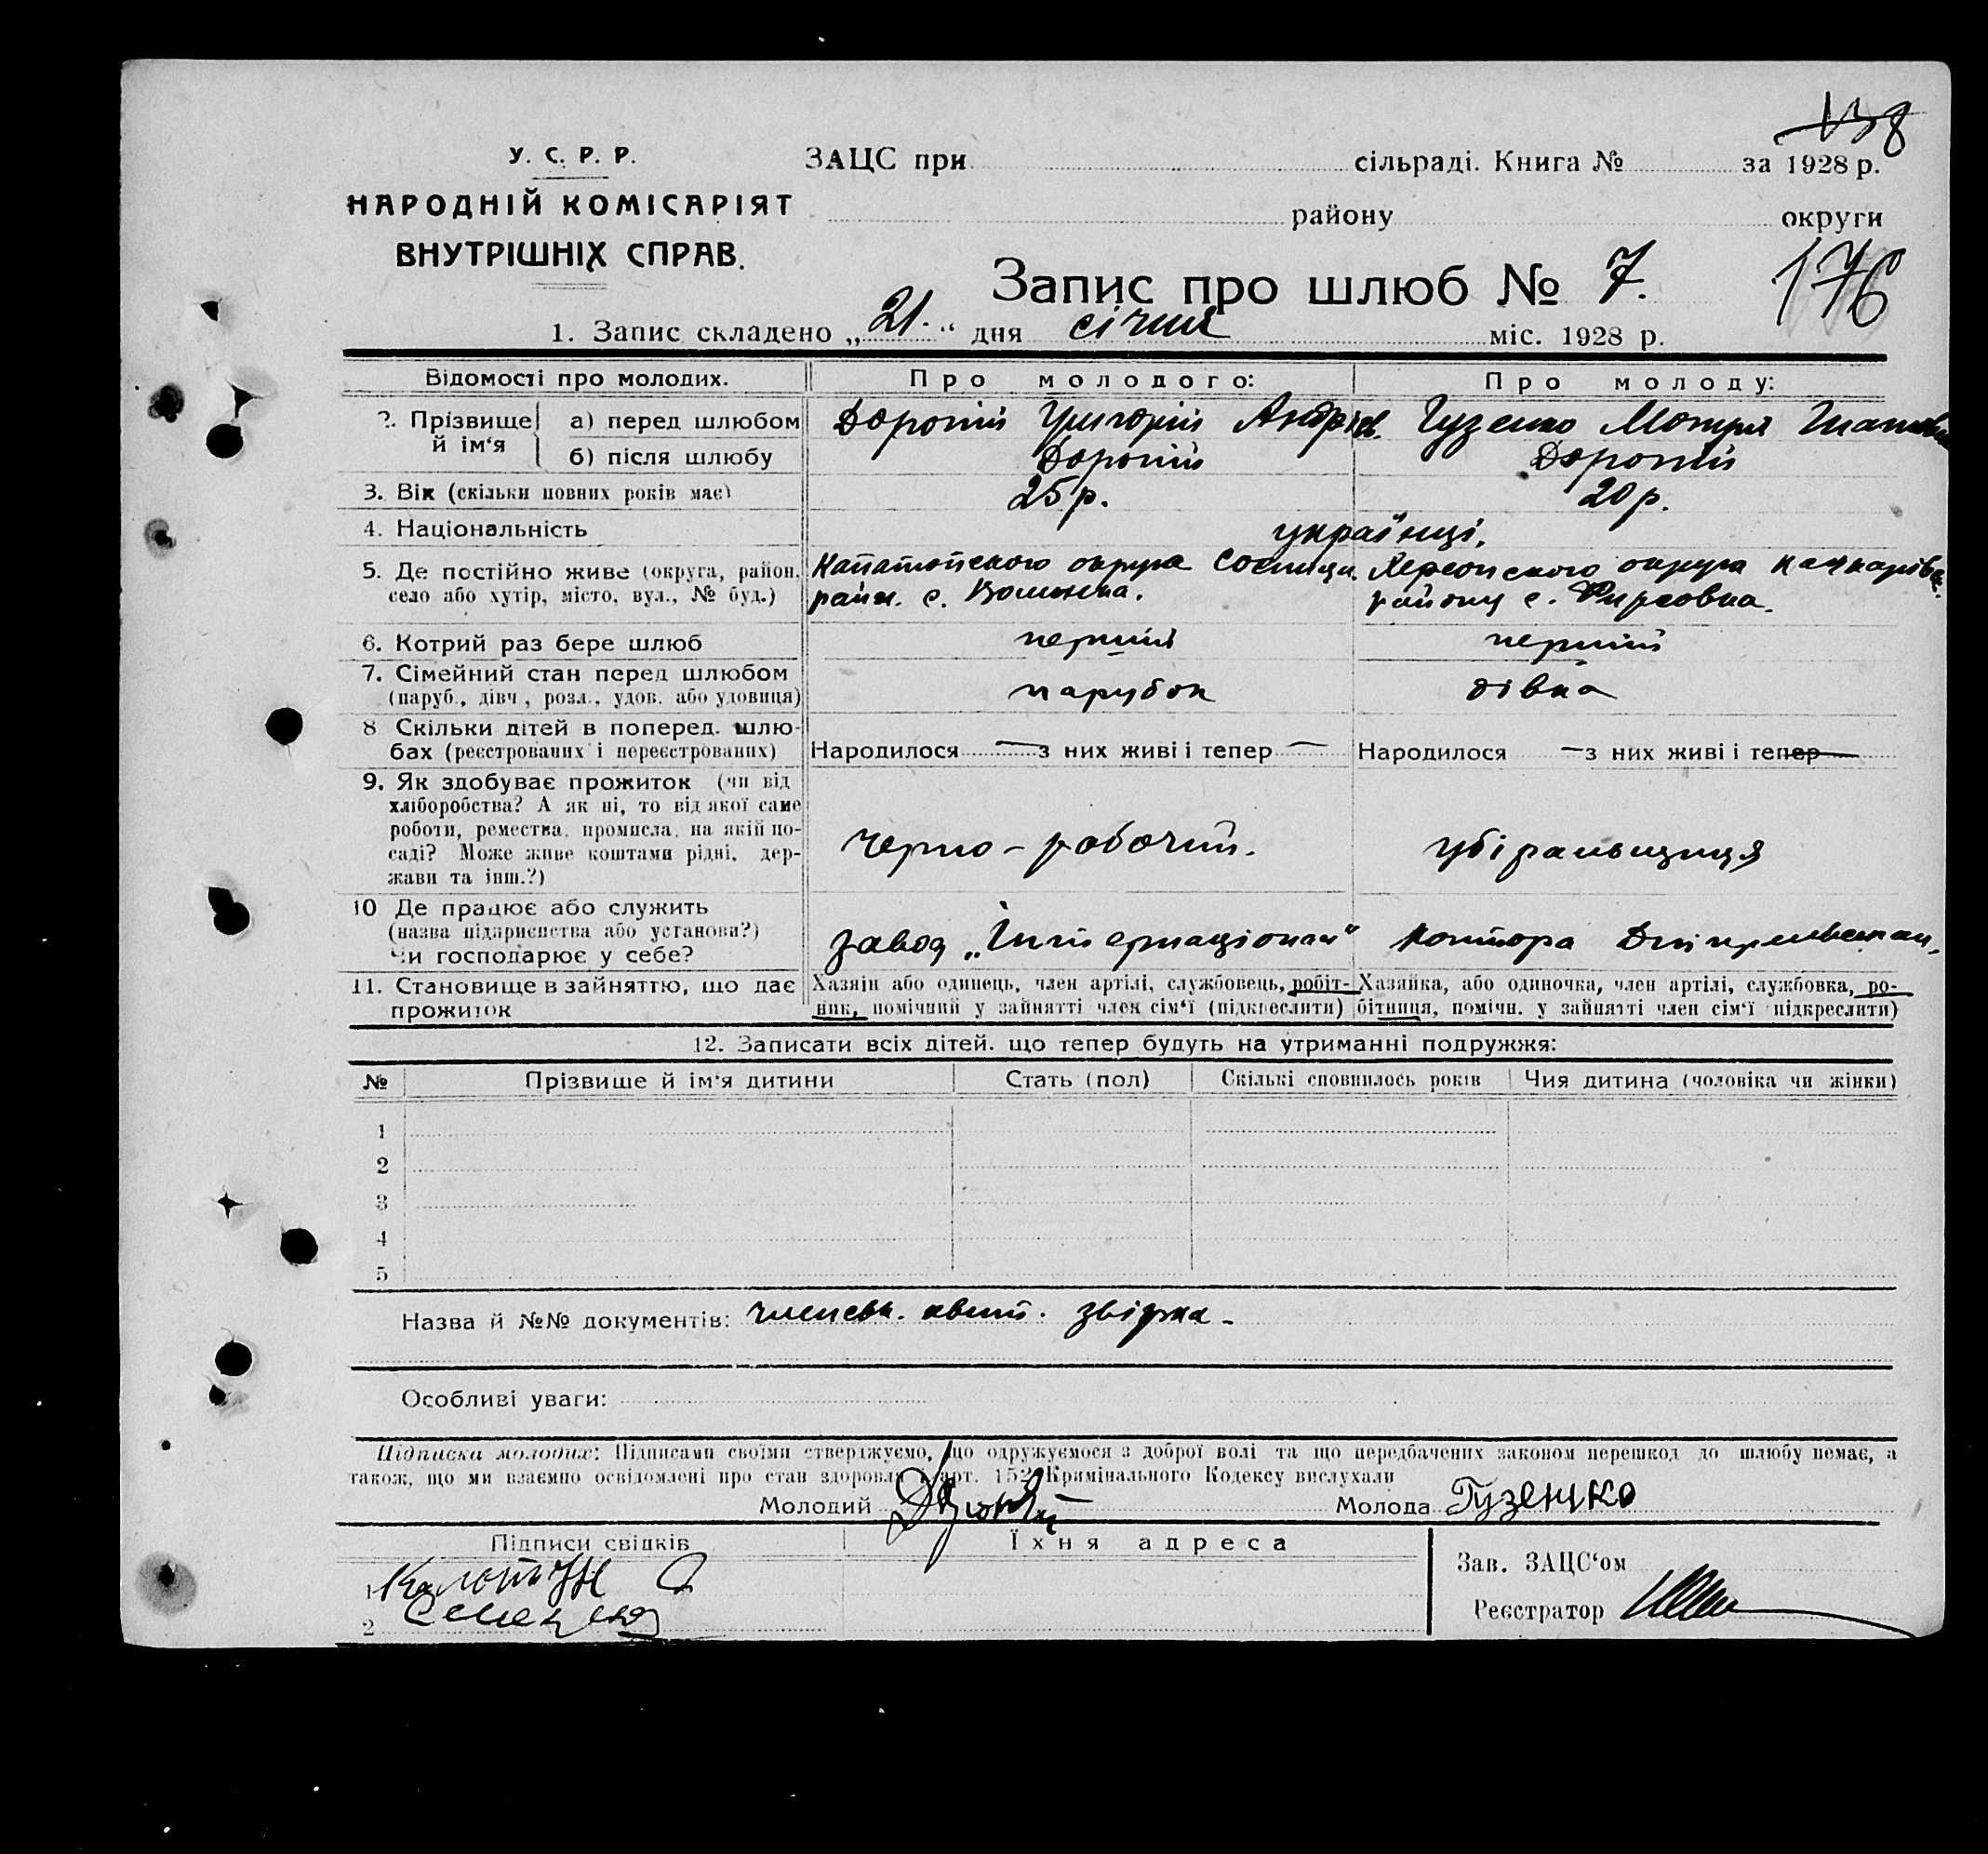 138
У. С. Р. Р.
НАРОДНІЙ КОМІСАРІЯТ
ВНУТРІШНІХ СПРАВ.
ЗАЦС при сільраді. Книга № за 1928 р.
району округи
Запис про шлюб № 7.
176
1. Запис складено „21." дня січня міс. 1928 р.
Відомості про молодих.
Про молодого:
Про молоду:
2. Прізвище й ім'я
а) перед шлюбом
Доротій Григорій Андрієв.
Гузенко Мотуря
б) після шлюбу
Доротій
Доротій
3. Вік (скільки повних років має)
25 р.
20 р.
4. Національність
українці.
5. Де постійно живе (округа, район, село або хутір, місто, вул., № буд.)
округа Сосницк.
райн. с. Волинка.
Херсонского округа Качкарівск.
району с. Фирсовка.
6. Котрий раз бере шлюб
перший
перший
7. Сімейний стан перед шлюбом
(паруб., дівч., розл., удов. або удовиця)
парубок
дівка
8 Скільки дітей в поперед. шлюбах (реєстрованих і нереєстрованих)
Народилося — з них живі і тепер —
Народилося — з них живі і тепер —
9. Як здобуває прожиток (чи від
хліборобства? А як ні, то від якої саме
роботи, ремества, промисла, на якій по-
саді? Може живе коштами рідні, дер-
жави та інш.?)
черно-рабочий.
убіральщиця
10 Де працює або служить
(назва підприємства або установи?)
Чи господарює у себе?
завод „Інтернаціонал"
контора
11. Становище в зайняттю, що дає
прожиток
Хазяїн або одинець, член артілі, службовець, робіт-
ник, помічний у зайнятті член сім'ї (підкреслити)
Хазяйка, або одиночка, член артілі, службовка, ро-
бітниця, помічн. у зайнятті член сім'ї підкреслити)
12. Записати всіх дітей. що тепер будуть на утриманні подружжя:
№ Прізвище й ім'я дитини Стать (пол) Скількі сповнилось років Чия дитина (чоловіка чи жінки)
1
2
3
4
5
Назва й №№ документів: членськ. квит. звірка -
Особливі уваги:
Підписка молодих: Підписами своїми стверджуємо, що одружуємося з доброї волі та що передбачених законом перешкод до шлюбу немає, а
також, що ми взаємно освідомлені про стан здоровля арт. 152 Кримінального Кодексу вислухали
Молодий
Молода Гузенко
Підписи свідків
Їхня адреса
1
2
Зав. ЗАЦС'ом
Реєстратор